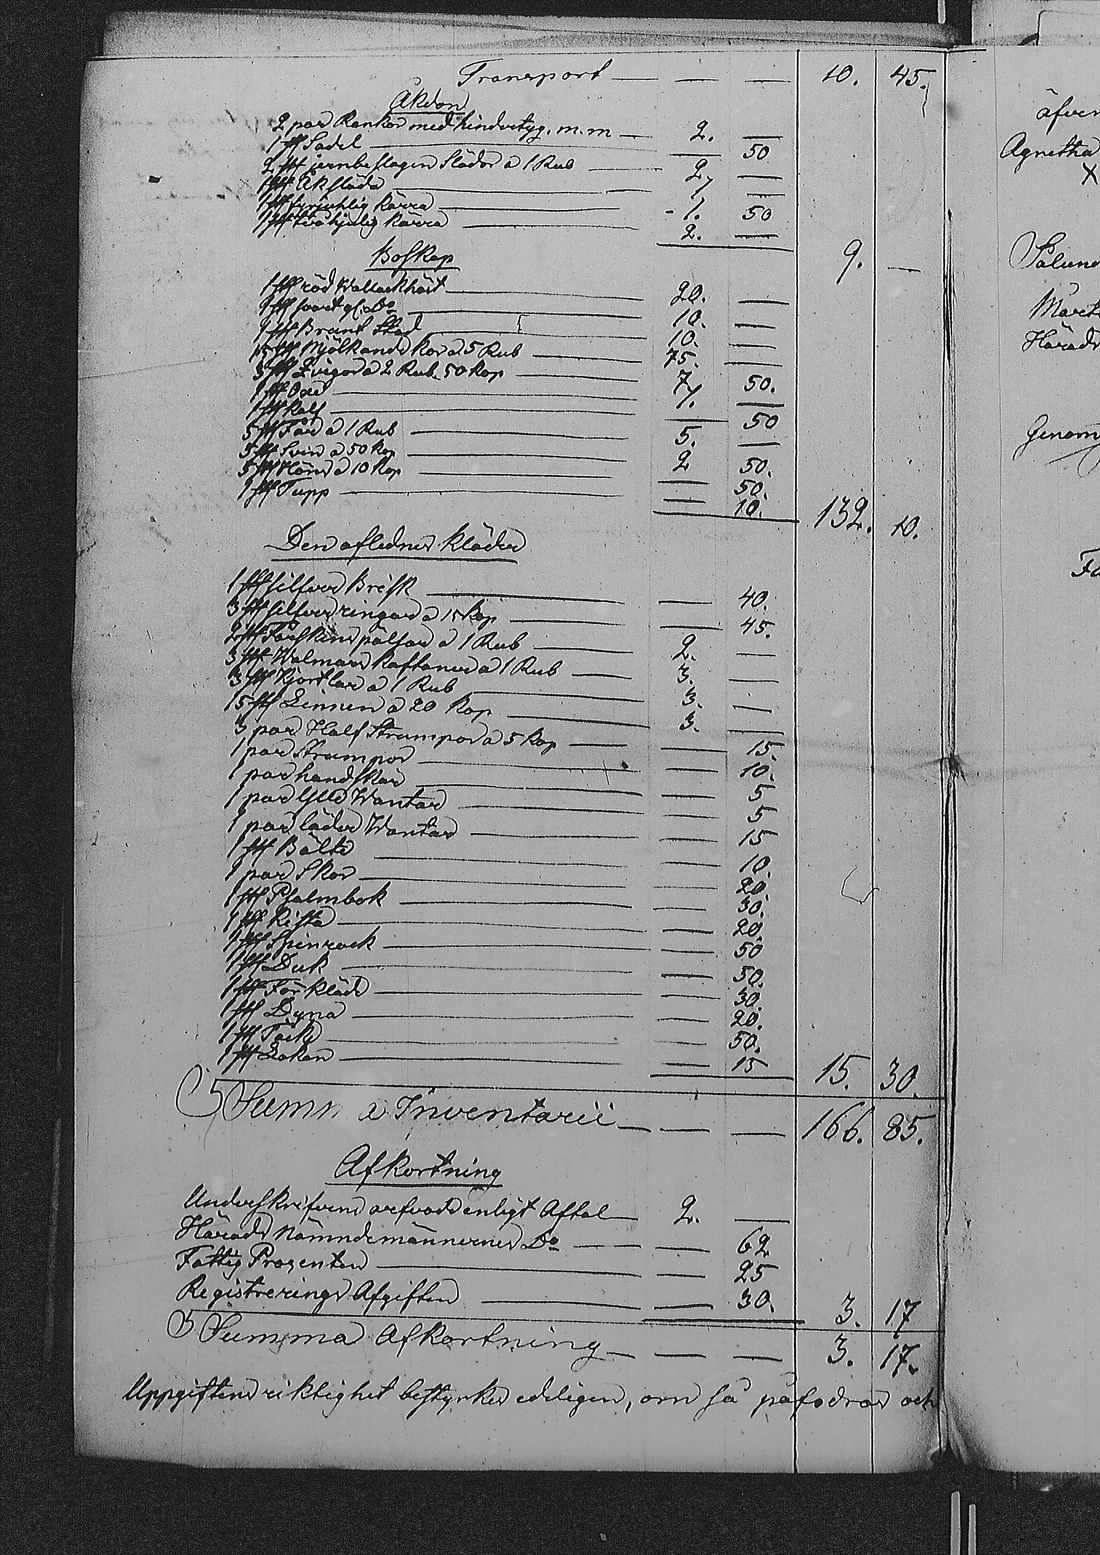 Transport — — — 10. 45.
Åkdon
2 par Rankor med hindertyg. m. m — 2. —
1 st Sadel — — 50
2 st jernbeslagen Slädor a 1 Rub — 2, —
1 st Åksläda — — —
1 st kärra — 1. 50
1 st tvåhjulig kärra — 2. — 9. —
Boskap
1 st röd Wallackhäst — 20. —
1 st svart gl. Do — 10. —
1 st Brunt Stod — 10. —
15 st Mjölkande kor a 5 Rub — 75. —
3 st Qvigor a 2 Rub. 50 Kop — 7, 50.
1 st Oxe — 1. —
1 st Kalf — — 50
5 st Får a 1 Rub — 5. —
5 st Svin a 50 Kop — 2 50.
5 st Höns a 10 Kop — — 50.
1 st Tupp — — 10. 132. 10.
Den aflednes kläder
1 st silfver Brisk — — 40.
3 st silfver ringar a 15 Kop — — 45.
2 st Fårskins pälsar a 1 Rub — 2. —
3 st Walmars kaftaner a 1 Rub — 3. —
3 st Kjortlar a 1 Rub — 3. —
15 st Linnen a 20 Kop — 3. —
3 par Half Strumpor a 5 Kop — — 15.
1 par Strumpor — — 10.
1 par handskar — — 5
1 par Ylle Wantar — — 5
1 par läder Wantar — — 15
1 st Bälte — — 10.
1 par Skor — — 20.
1 st Psalmbok — — 30.
1 st Kista — — 20.
1 st Spinrock — — 50
1 st Duk — — 50.
1 st Förkläde — — 30.
1 st Dyna — — 20.
1 st Täcke — — 50.
1 st Lakan — — 15 15. 30.
Summa Inventarii — — — 166. 85.
Afkortning
Underskrifvens arfvode enligt Aftal — 2. —
Härads Nämndemännernes Do — — 62
Fattig Procenten — — 25
Registrerings Afgiften — — 30. 3. 17
Summa Afkortning — — — 3. 17.
Uppgiftens riktighet bestyrkes edeligen, om så påfodras och
äfven
Agnetha
X
Sålunda
Härads
Genom